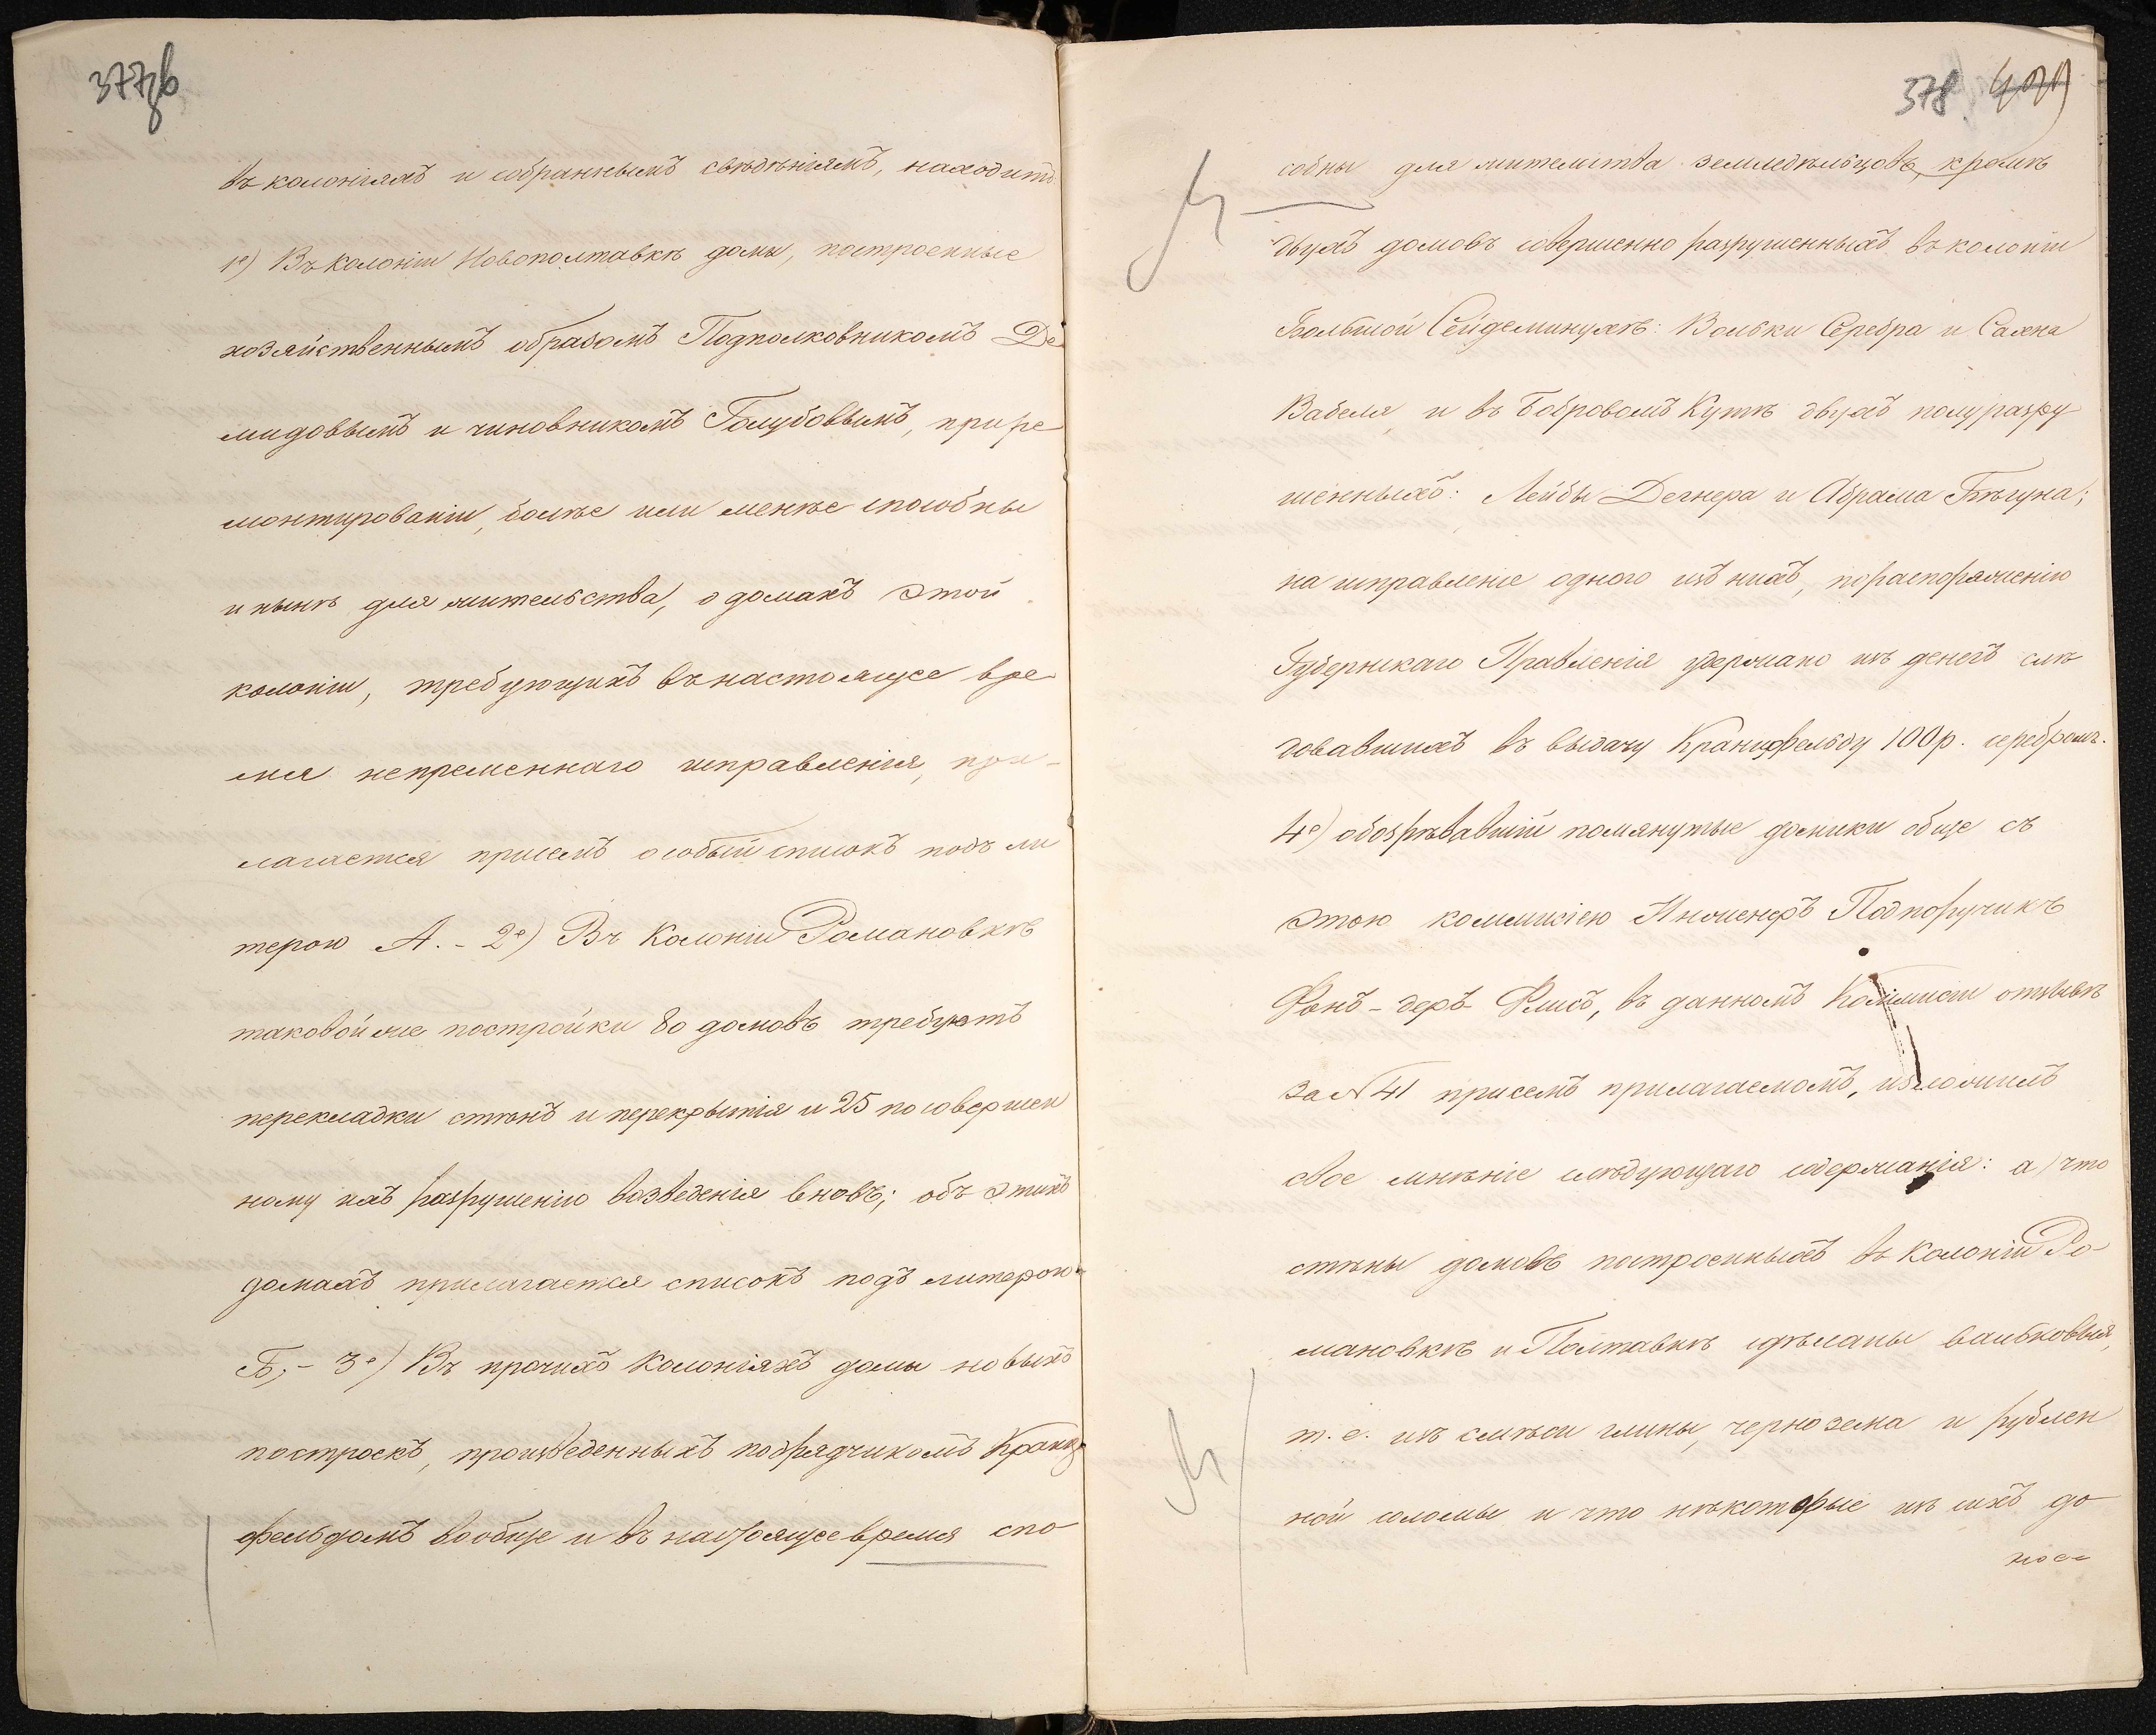 377об
въ колоніяхъ и собраннымъ свѣдѣніямъ, находитъ
1е) Въ колоніи Новополтавкѣ домы, построенные
хозяйственнымъ образомъ Подполковникомъ Де
мидовымъ и чиновникомъ Голубовымъ, при ре
монтированіи, болѣе или менѣе способны
и нынѣ для жительства, о домахъ этой
колоніи, требующихъ въ настоящее вре
мя непременнаго исправленія, при-
лагается присемъ особый списокъ подъ ли
терою А. - 2е) Въ Колоніи Романовкѣ
таковой же постройки 80 домовъ требуютъ
перекладки стѣнъ и перекрытія и 25 по совершен
ному ихъ разрушенію возведенія вновь; объ этихъ
домахъ прилагается списокъ подъ литерою
Б, - 3е) Въ прочихъ Колоніяхъ домы новыхъ
построекъ, произведенныхъ подрядчикомъ Кранц
фельдомъ вообще и въ настоящее время спо
378
собны для жительства земледѣльцовъ, кромѣ
двухъ домовъ совершенно разрушенныхъ въ колоніи
Большой Сейдеминухѣ: Вольки Серебра и Сахна
Вабеля, и въ Бобровомъ Кутѣ двухъ полуразру
шенныхъ: Лейбы Дегнера и Абрама Бѣгуна;
на исправленіе одного изъ нихъ, по распоряженію
Губернскаго Правленія удержано изъ денегъ слѣ
довавшихъ въ выдачу Кранцфельду 100 р. серебромъ.
4е) обозрѣвавшій помянутые домики обще съ
этою коммисіею Инженеръ Подпоручикъ
Фонъ-деръ Флисъ, въ данномъ Коммисіи отзывѣ
за № 41 присемъ прилагаемомъ, изложилъ
свое мнѣніе слѣдующаго содержанія: а) что
стѣны домовъ построенныхъ въ Колоніи Ро-
мановкѣ и Полтавкѣ сдѣланы вальковыя,
т. е. изъ смѣси глины, чернозема и рублен
ной соломы и что нѣкоторые изъ нихъ до